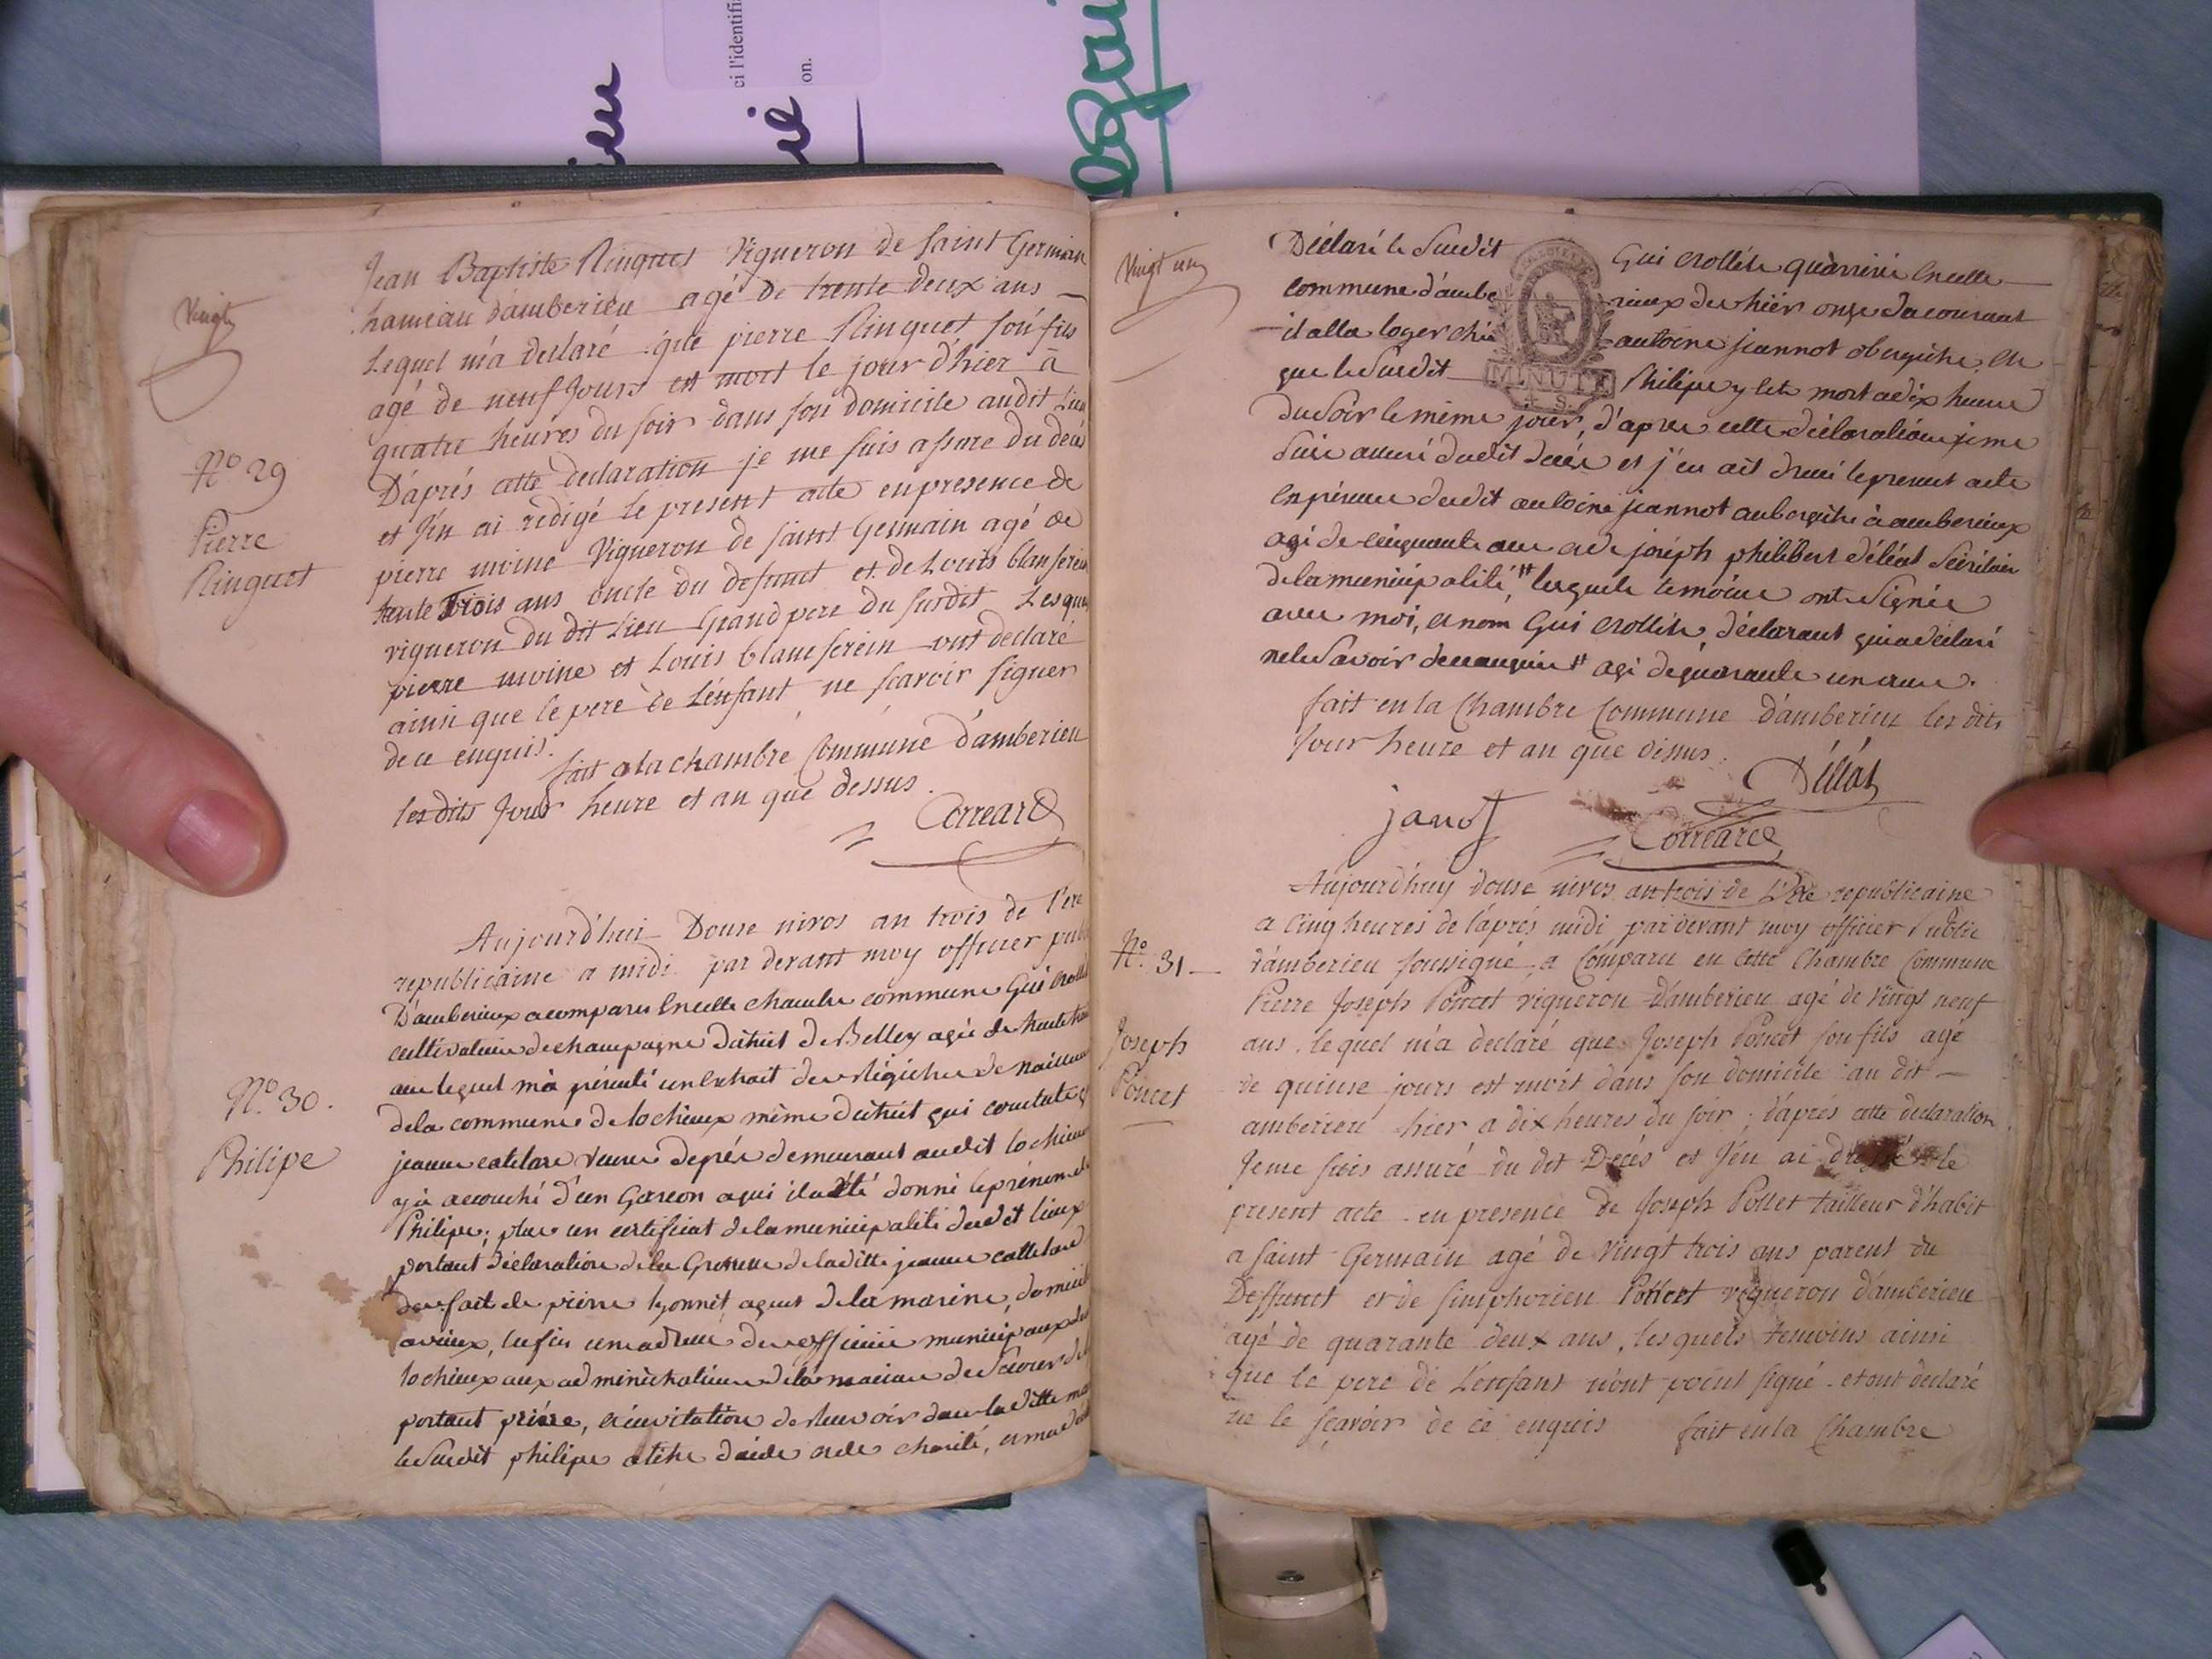 ci l'identifi
on.
Vingt
Jean Baptiste Ringuet Vigneron de saint Germain
hameau d'amberieu agé de trente deux ans
Lequel m'a declaré que pierre Ringuet son fils
agé de neuf Jours est mort le jour d'hier à
quatre heures du soir dans son domicile audit Lieu
D'aprés cette declaration je me suis assuré du decès
et J'en ai redigé le present acte en presence de
N° 29
Pierre
Ringuet
pierre moine Vigneron de saint Germain agé de
trente Trois ans oncle du defunct et de Louis blanserein
vigneron du dit Lieu Grand pere du surdit Lesquels
pierre moine et Louis blanserein ont declaré
ainsi que le pere de L'enfant ne scavoir signer
de ce enquis.
fait a la chambre Commune d'amberieu
les dits Jour heure et an que dessus.
Correard
Aujourd'hui Douse nivos an trois de l'ere
republicaine a midi par devant moy officier publ
D'amberieux a comparu en cette chambre commune Gui
cultivateur de champagne district de Belley agée de trente
N° 30.
Philipe
ans lequel m'a présenté un Extrait des registres de naissan
de la commune de lochieux même district qui constate q
jeanne catelare veuve depré demeurant audit lochieu
y a accouché d'un Garcon a qui il a été donné le prénom de
Philipe; plus un certificat de la municipalité dudit lieux
portant déclaration de la Grossesse de la ditte jeanne cattelard
des faits de pierre lyonnet, agent de la marine, domicil
avieux, enfin une adresse des officiers municipaux de
lochieux aux administrateurs de la maison des Secours de
portant priere, et invitation de recevoir dans la ditte ma
le Susdit philipe a titre d'aide et de charité,
Vingt un
Déclaré le Susdit Gui crollet qu'arrivé en cette
commune d'amberieux des hier onze du courant
il alla loger ché antoine jeannot obergiste, et
que le Susdit Philipe y est mort a dix heures
MINUTE
du Soir le même jour, d'apres cette déclaration je me
Suis assuré dudit decés et j'en ait dressé le present acte
en présence dudit antoine jeannot aubergiste à amberieux
agé de cinquante ans et de joseph philibert déléat Sécrétaire
de la municipalité, # lesquels temoins ont Signés
avec moi, et nom Gui crollet, déclarant qui a déclaré
ne le Savoir de ce enquis # agé de quarante un ans.
fait en la Chambre Commune d'amberieu les dits
Jour heure et an que dessus.
Déléat
janot
Correard
Aujourd'huy douse nivos an trois de L'Ere republicaine
a Cinq heures de l'aprés midi par devant moy officier Public
N° 31
d'amberieu soussigné, a Comparu en cette Chambre Commune
Pierre Joseph Poncet vigneron d'amberieu agé de vingt neuf
Joseph
Poncet
ans, lequel m'a declaré que Joseph Poncet son fils agé
de quinse jours est mort dans son domicile au dit
amberieu hier a dix heures du soir; d'aprés cette declaration
Je me suis assuré du dit Decés et J'en ai dressé le
present acte en presence de Joseph Pollet tailleur d'habit
a saint Germain agé de vingt trois ans parent du
Deffunct et de simphorien vigneron d'amberieu
agé de quarante deux ans, lesquels temoins ainsi
que le pere de L'enfant n'ont point signé et ont declaré
ne le scavoir de ce enquis fait en la Chambre